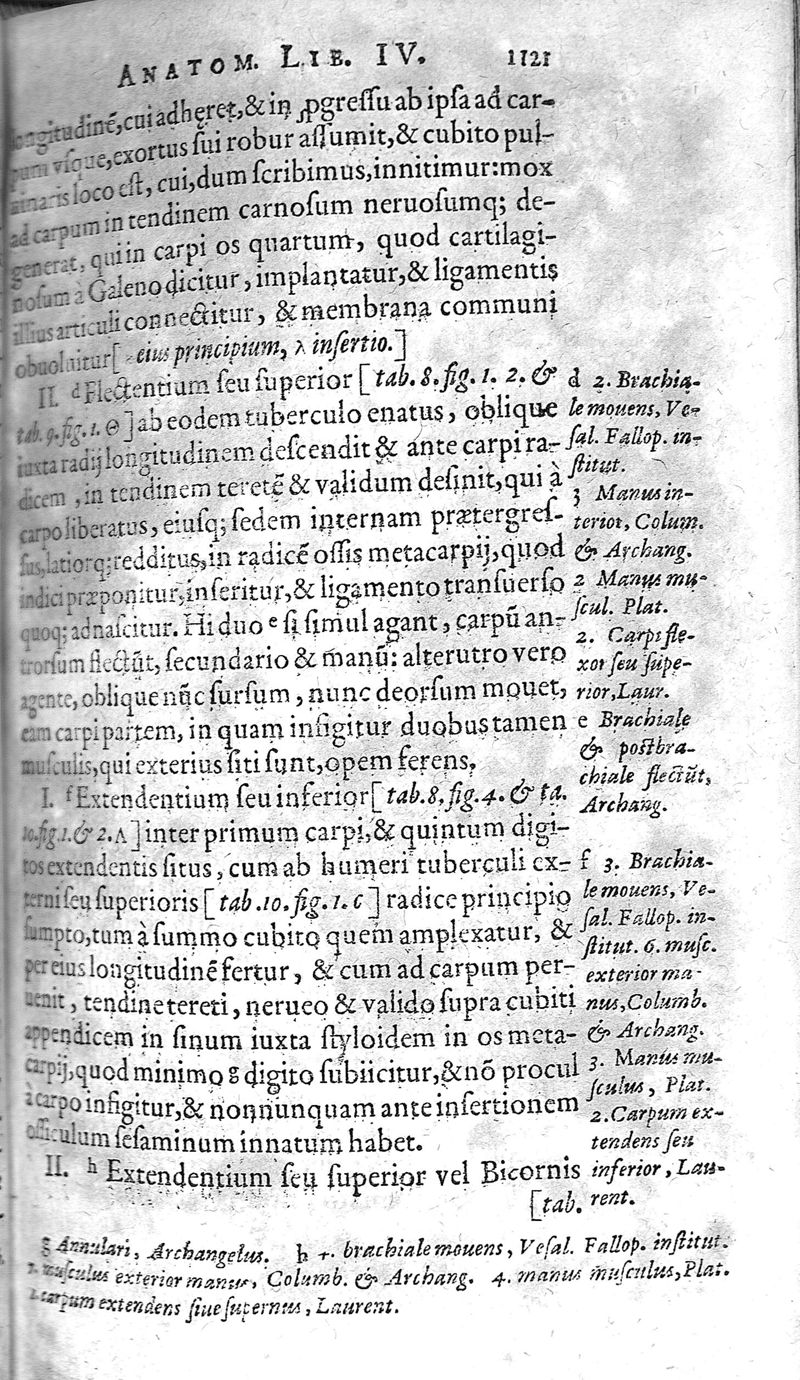 ANATOM. LIB. IV. 1121
longitudinē, cui adhęret, & in ꝓgreſſu ab ipſa ad car-
pum vſque, exortus ſui robur aſſumit, & cubito pul-
loco eſt, cui, dum ſcribimus, innitimur: mox
ad carpum in tendinem carnoſum neruoſumq; de-
generat, qui in carpi os quartum, quod cartilagi-
noſum à Galeno dicitur, implantatur, & ligamentis
illius articuli connectitur, & membrana communi
obuoluitur [ eius principium, λ inſertio.]
II. ᵈ Flectentium ſeu ſuperior [tab. 8. fig. 1. 2. &
tab. 9. fig. 1. Θ] ab eodem tuberculo enatus, oblique
iuxta radij longitudinem deſcendit & ante carpi ra-
dicem, in tendinem teretē & validum deſinit, qui à
carpo liberatus, eiuſq; ſedem internam prætergreſ-
ſus, latiorq; redditus, in radicē oſſis metacarpij, quod
indici præponitur, inſeritur, & ligamento tranſuerſo
quoq; adnaſcitur. Hi duo ᵉ ſi ſimul agant, carpū an-
trorſum flectūt, ſecundario & manū: alterutro vero
agente, oblique nūc ſurſum, nunc deorſum mouet,
eam carpi partem, in quam infigitur duobus tamen
muſculis, qui exterius ſiti ſunt, opem ferens.
I. ᶠ Extendentium ſeu inferior [tab. 8. fig. 4. & ta.
10. fig. 1. & 2. Λ] inter primum carpi, & quintum digi-
tos extendentis ſitus, cum ab humeri tuberculi ex-
terni ſeu ſuperioris [tab. 10. fig. 1. c] radice principio
ſumpto, tum à ſummo cubito quem amplexatur, &
per eius longitudinē fertur, & cum ad carpum per-
uenit, tendine tereti, nerueo & valido ſupra cubiti
appendicem in ſinum iuxta ſtyloidem in os meta-
carpij, quod minimo ᵍ digito ſubiicitur, & nō procul
à carpo infigitur, & nonnunquam ante inſertionem
officulum ſeſaminum innatum habet.
II. ʰ Extendentium ſeu ſuperior vel Bicornis
[tab.
d 2. Brachia-
le mouens, Ve-
ſal. Fallop. in-
ſtitut.
3 Manus in-
terior, Colum.
& Archang.
2 Manus mu-
ſcul. Plat.
2. Carpi fle-
xor ſeu ſupe-
rior, Laur.
e Brachiale
& poſtbra-
chiale flectūt,
Archang.
f 3. Brachia-
le mouens, Ve-
ſal. Fallop. in-
ſtitut. 6. muſc.
exterior ma-
nus, Columb.
& Archang.
3. Manus mu-
ſculus, Plat.
2. Carpum ex-
tendens ſeu
inferior, Lau-
rent.
g Annulari, Archangelus. h 4. brachiale mouens, Veſal. Fallop. inſtitut.
muſculus exterior manus, Columb. & Archang. 4. manus muſculus, Plat.
carpum extendens ſiue ſupernus, Laurent.